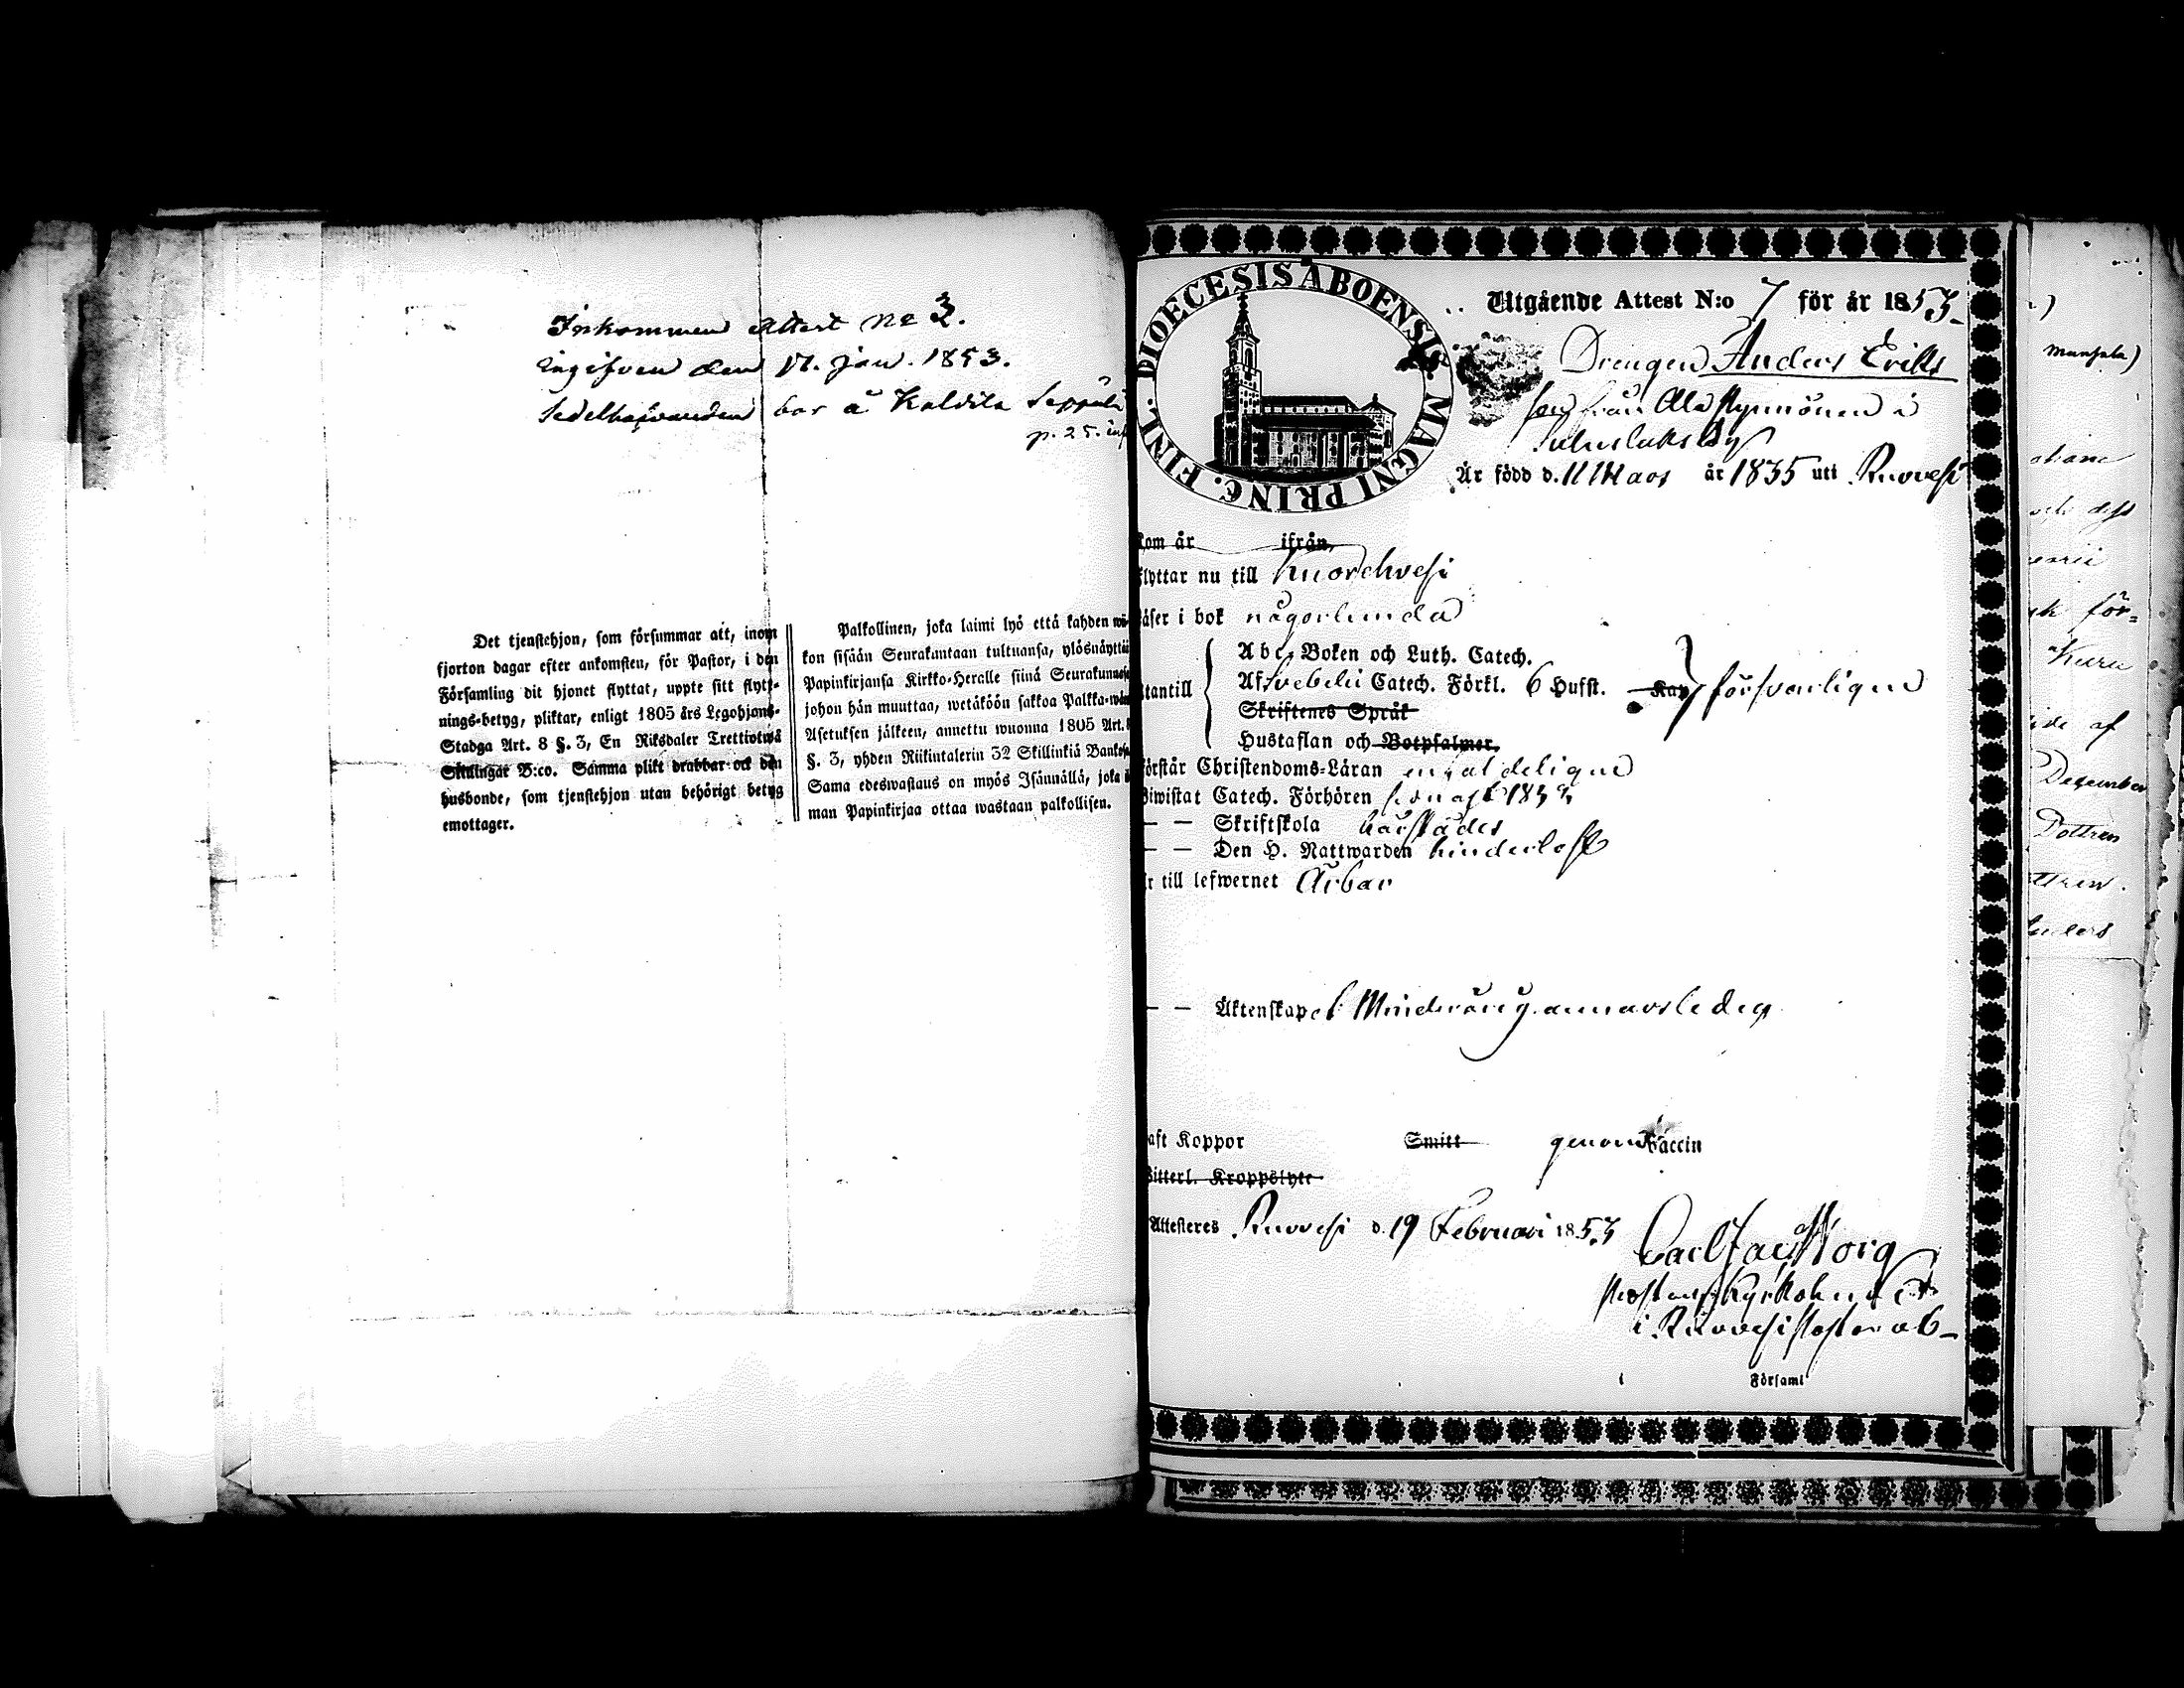 Inkommen Attest No 3.
ingifven den 17. Jan. 1853.
Sedelhafvanden bor å Kaldila Seppälä
p. 25. inf
Det tjenstehjon, som försummar att, inom
fjorton dagar efter ankomsten, för Pastor, i den
Församling dit hjonet flyttat, uppte sitt flytt-
nings-betyg, pliktar, enligt 1805 års Legohjons-
Stadga Art. 8 §. 3, En Riksdaler Trettiotwå
Skillingar B:co. Samma plikt drabbar ock den
husbonde, som tjenstehjon utan behörigt betyg
emottager.
Palkollinen, joka laimi lyö että kahden wii-
kon sisään Seurakuntaan tultuansa, ylösnäyttää
Papinkirjansa Kirkko-Heralle siinä Seurakunnasa
johon hän muuttaa, wetäköön sakkoa Palkka-wäen
Asetuksen jälkeen, annettu wuonna 1805 Art. 8
§. 3, yhden Riikintalerin 32 Skillinkiä Bankosa
Sama edeswastaus on myös Isännällä, joka il
man Papinkirjaa ottaa wastaan palkollisen.
DIOECESIS ÅBOENSIS. MAGNI PRINC. FINL.
Utgående Attest N:o 7 för år 1853
Drengen Anders Eriks
son från Ala
i
Är född d. 11 Mars år 1835 uti Ruovesi
kom år ifrån
flyttar nu till Kuorehvesi
läser i bok någorlunda
Abc-Boken och Luth. Catech.
utantill Af Svebelii Catech. Förkl. 6 Hufst. försvarligen
Skriftenes Språk
Hustaflan och Botpsalmer.
Förstår Christendoms-Läran enfaldeligen
Biwistat Catech. Förhören senast 1852
— — Skriftskola härstädes
— — Den H. Nattwarden hinderlöst
Är till lefwernet Ärbar
— — Äktenskapet Minderårig annars ledig
haft Koppor Smitt genom Vaccin
Witterl. Kroppslyte
Attesteres Ruovesi d. 19 Februari 1853
Carl Jac
Prosten Kyrkoh
i Ruovesi
i Församl
Munsala)
dess
för=
Kuru
af
Dezember
Dottren